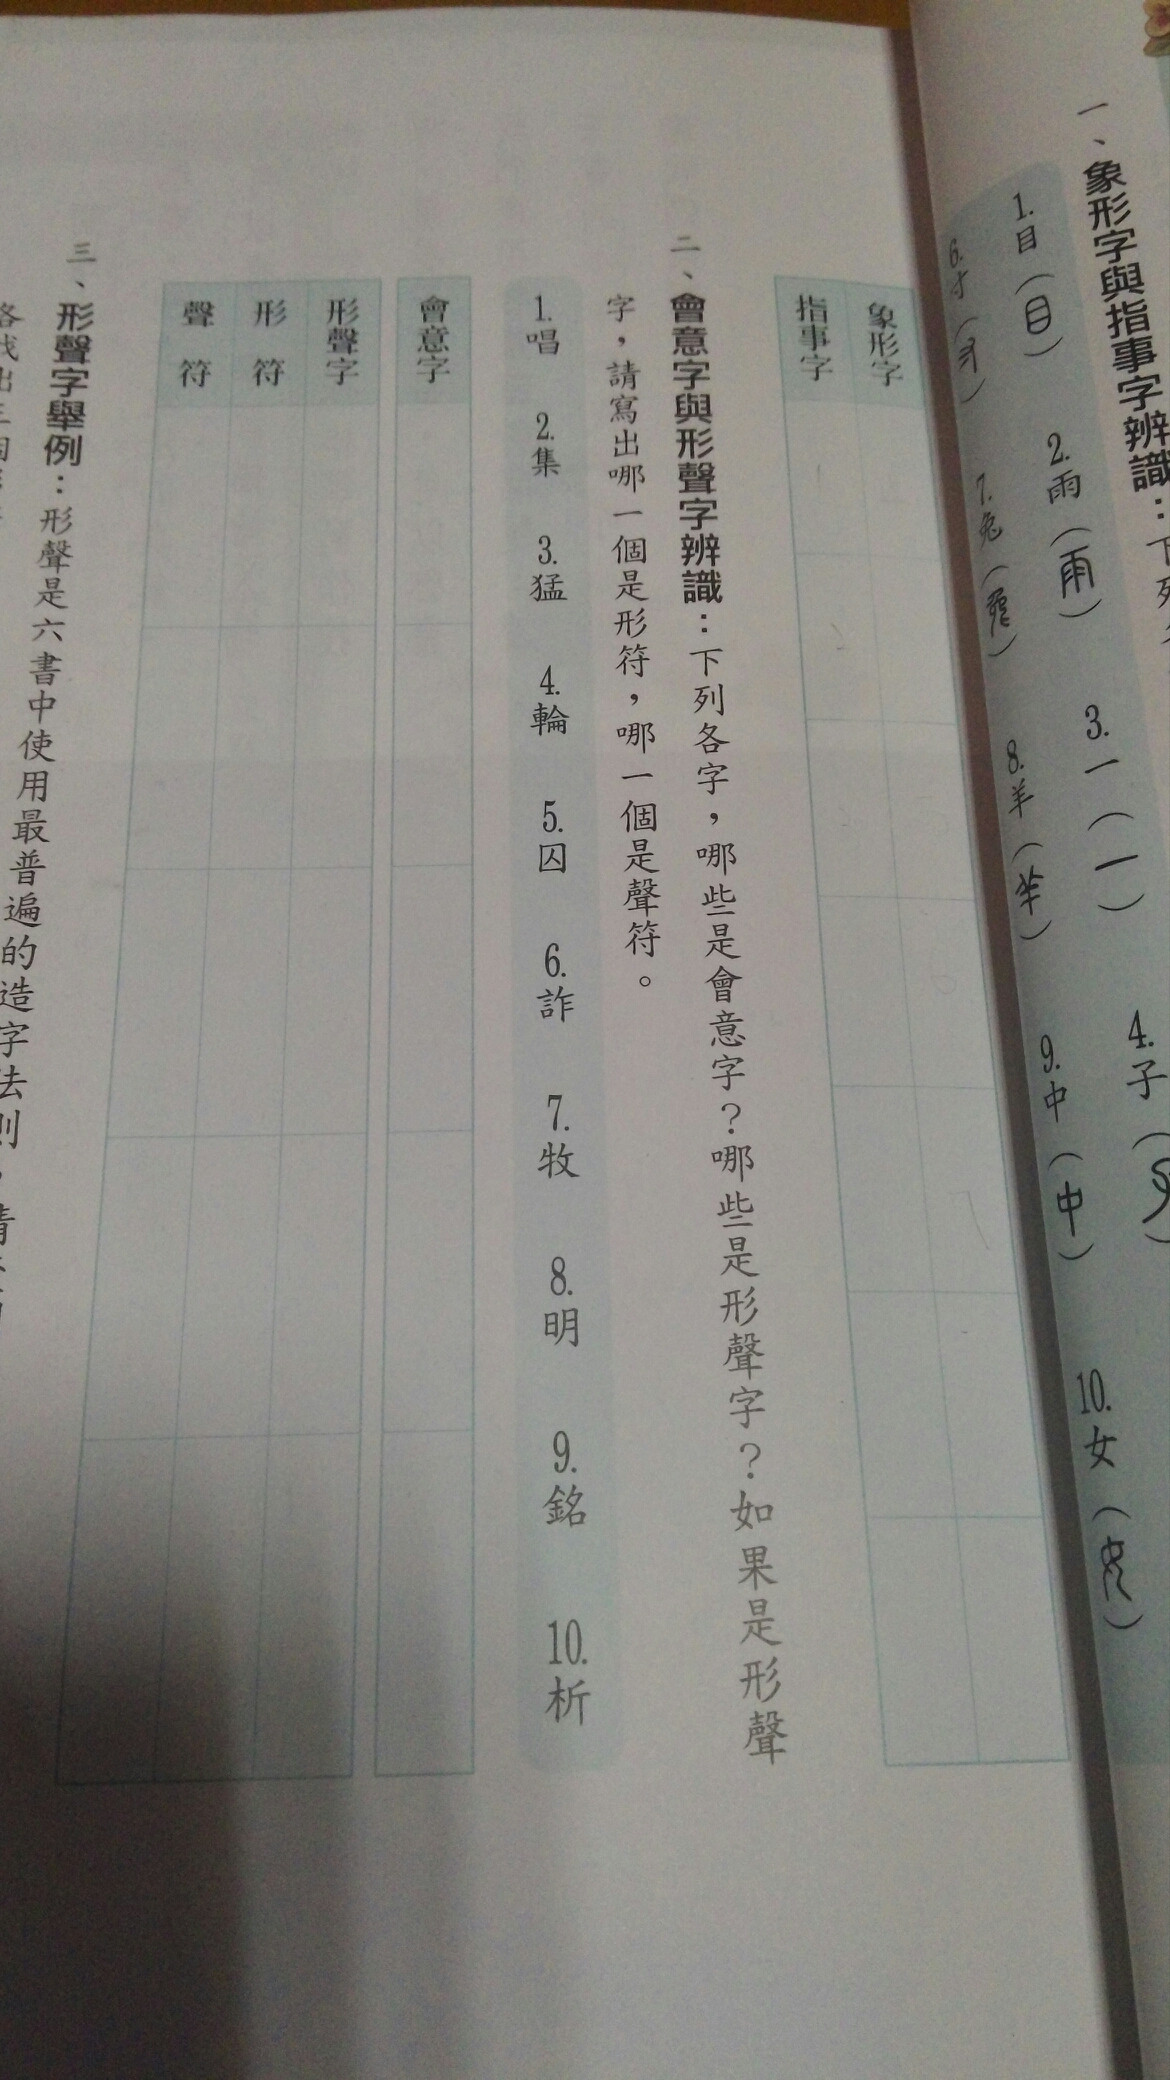 一、象形字與指事字辨識：下列
1.目（目）
2.雨（雨）
3.一（一）
4.子（
6.才（才）
7.兔（
8.羊（羊）
9.中（中）
10.女（女）
象形字
指事字
二、會意字與形聲字辨識：下列各字，哪些是會意字？哪些是形聲字？如果是形聲
字，請寫出哪一個是形符，哪一個是聲符。
1.唱 2.集 3.猛 4.輪 5.囚 6.詐 7.牧 8.明 9.銘 10.析
會意字
形聲字
形符
聲符
三、形聲字舉例：形聲是六書中使用最普遍的造字法則，請